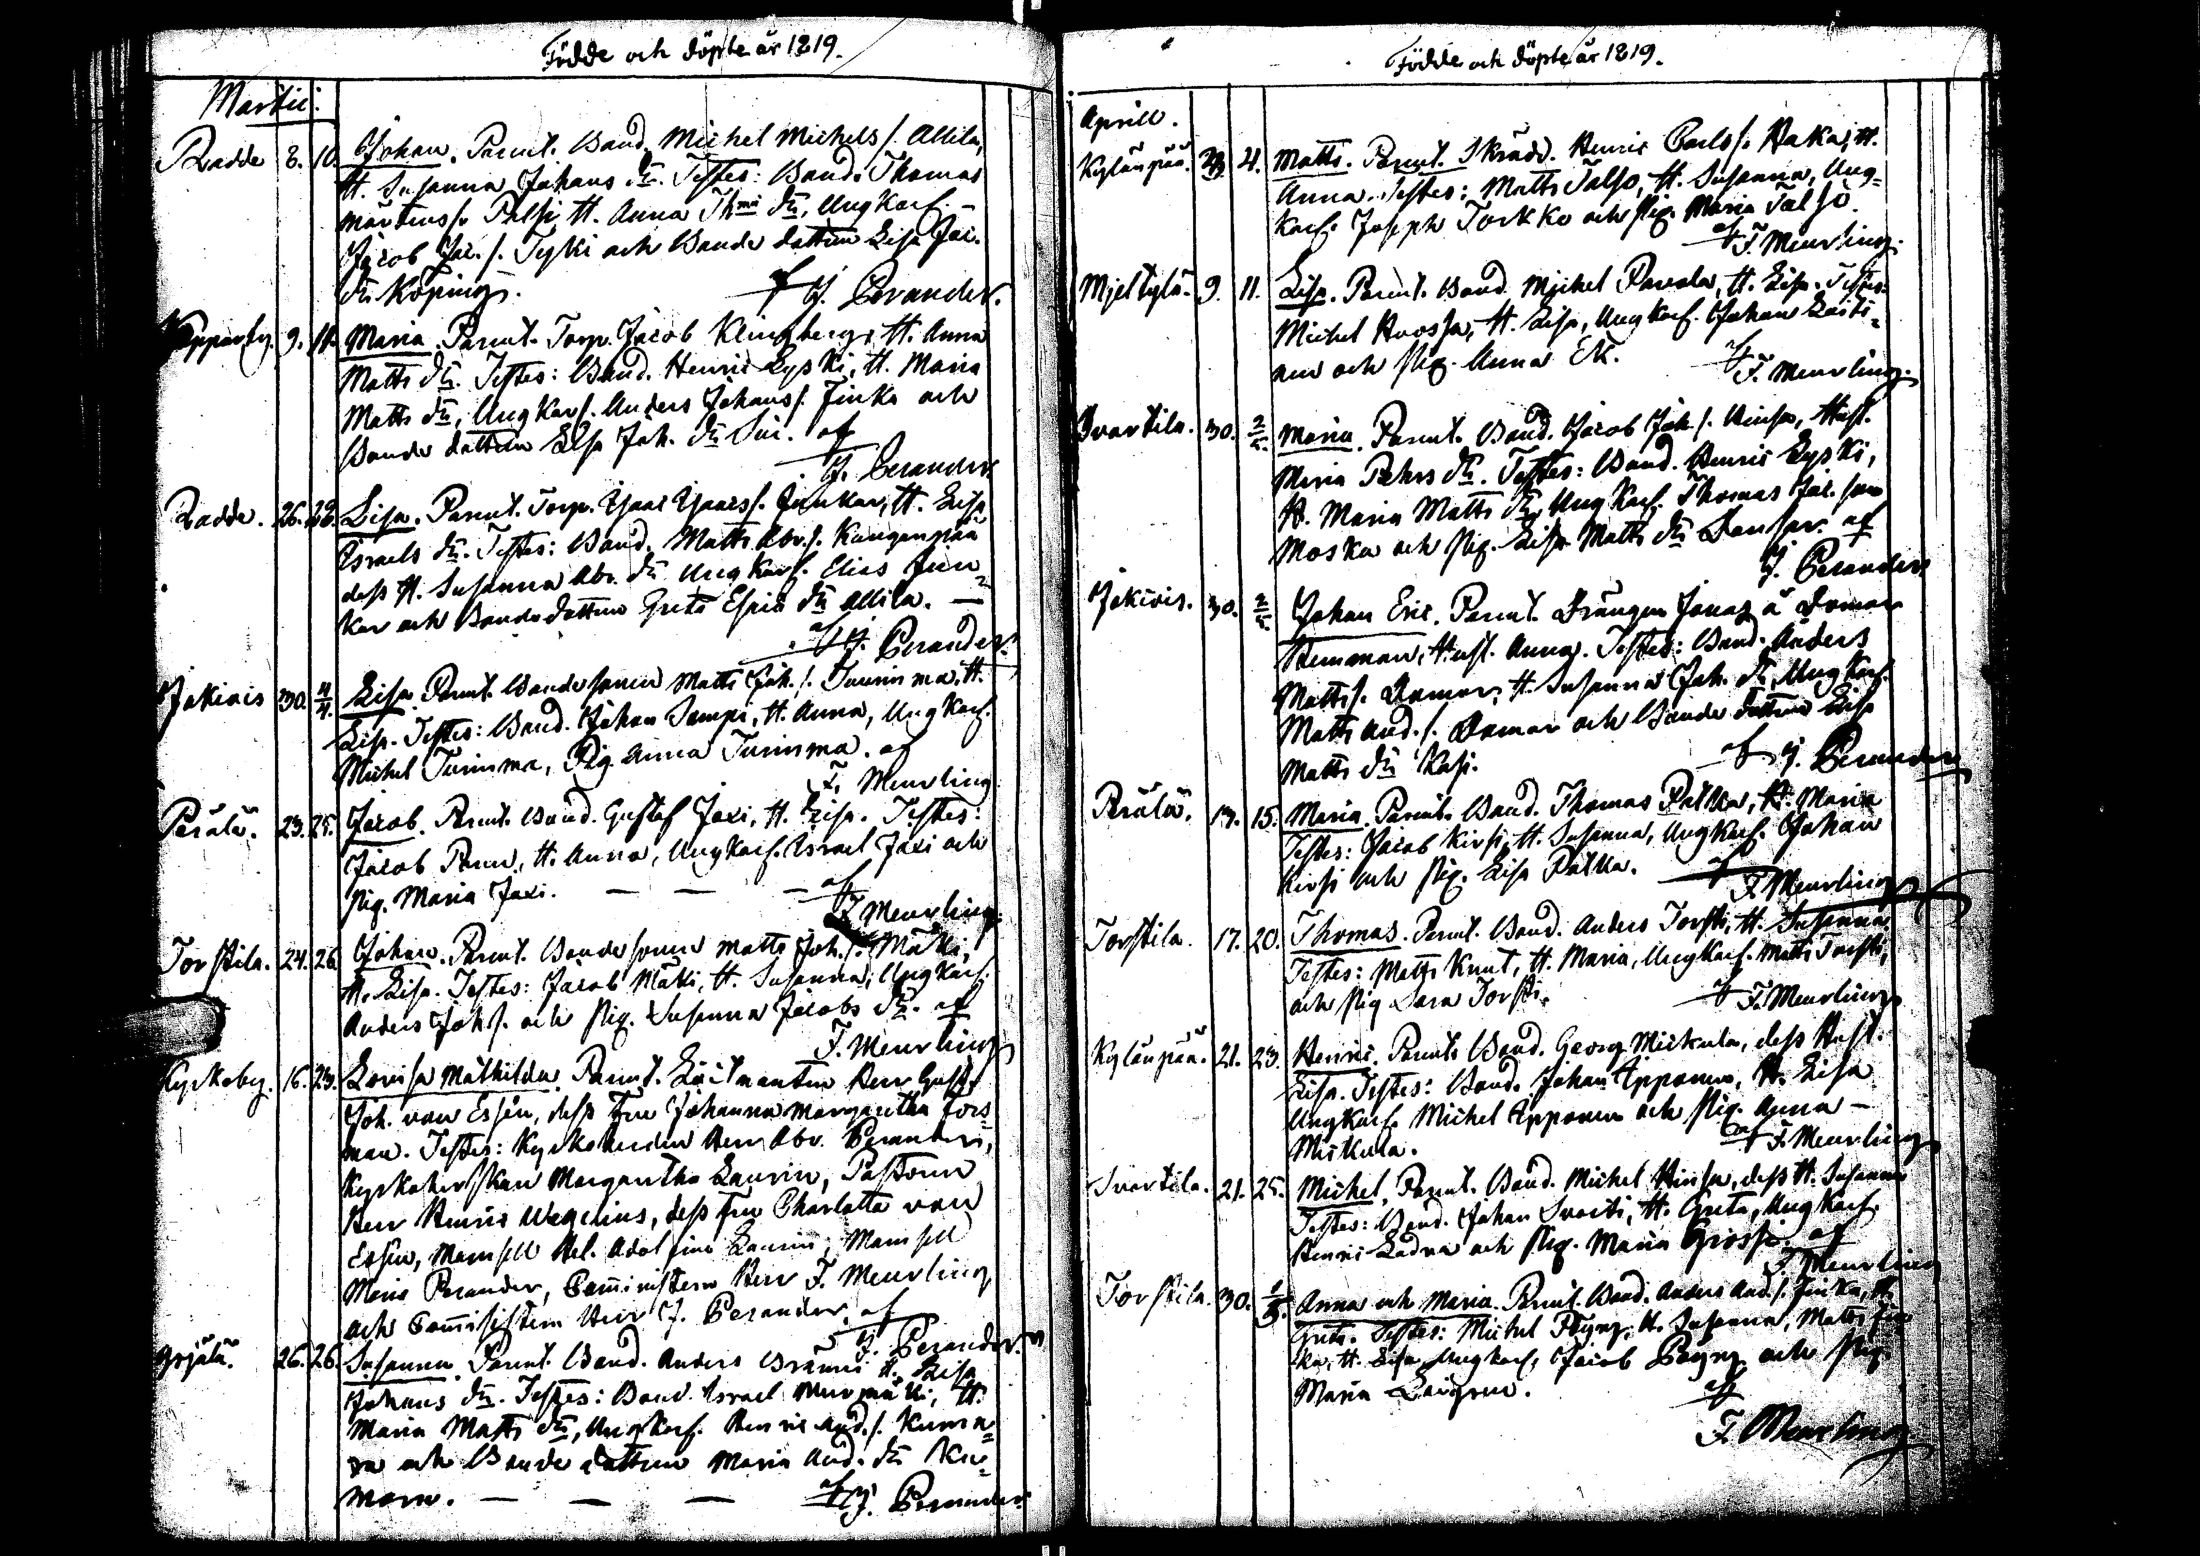 Födde och döpte år 1819.
Martii.
Radde 8. 10. Johan. Parent. Bond. Michel Michels s. Allila,
H. Susanna Johans dr. Testes: Bond. Thomas
Mårtens s. Palsi H. Anna Thms dr, Ung Karl.
Jacob Jac. s. Tyki och Bonde dottren Lisa Jac.
dr Köpings.
af J. Perander.
Kopparby. 9. 11. Maria. Parent. Torp. Jacob Klingberg, H. Anna
Matts dr. Testes: Bond. Henric Lyski, H. Maria
Matts dr, Ung Karl. Anders Johans s. Finka och
Bonde dottren Lisa Joh. dr af
J. Perander.
Radde. 26. 28. Lisa. Parent. Torp. Isaac Isaacs s. Junkar, H. Lisa
Israels dr. Testes: Bond. Matts Abr. s. Kanganpää
dess H. Susanna Abr. dr Ung Karl. Elias Jun=
kar och Bonde dottren Greta Esaiæ dr Allila. —
af J. Perander.
Jokiois 30. 4/4. Lisa. Parent. Bonde sonen Matts Joh. s. H.
Lisa. Testes: Bond. Johan Sampi, H. Anna, Ung Karl.
Michel Pig. Anna af
F. Meurling.
Perälä. 23. 25. Jacob. Parent. Bond. Gustaf Jaxi, H. Lisa. Testes:
Jacob H. Anna, Ung Karl. Israel Jaxi och
Pig. Maria Jaxi. — — — af
F. Meurling.
Torstila. 24. 26. Johan. Parent. Bonde sonen Matts Joh. s. Mäki,
H. Lisa. Testes: Jacob Mäki, H. Susanna, Ung Karl.
Anders Joh. s. och Pig. Susanna Jacobs dr. af
F. Meurling.
Kyrkoby. 16. 23. Lovisa Mathilda. Parent. Löitnanten Herr Gust.
Joh. von Essen, dess Fru Johanna Margaretha Fors=
man. Testes: Kyrkoherden Herr Abr. Perander,
Kyrkoherskan Margaretha Laurin, Pastorn
Herr Henric Wegelius, dess Fru Charlotta von
Essen, Mamsell Hel. Adolfina Laurin, Mamsell
Maria Perander, Comministern Herr F. Meurling
och Herr J. Perander. af
J. Perander.
Orjala. 26. 26. Susanna. Parent. Bond. Anders H. Lisa
Johans dr. Testes: Bond. Israel H.
Maria Matts dr, Ung Karl. Henric And. s.
och Bonde dottren Maria And. dr
— — — af J. Perander

Födde och döpte år 1819.
Aprill.
Kylänpää. 4. Matts. Parent. Skrädd. Henric Carls s. Haka, H.
Anna. Testes: Matts Talso, H. Susanna, Ung=
Karl. Joseph Torkko och Pig. Maria Talso.
af F. Meurling.
Mjeltylä. 9. 11. Lisa. Parent. Bond. Michel Pavola, H. Lisa. Testes:
Michel H. Lisa, Ung Karl. Johan
och Pig. Anna Ek.
af F. Meurling.
Svartila. 30. 2/5. Maria. Parent. Bond. Jacob Joh. s. Hinsa, Hust.
Maria Pehrs dr. Testes: Bond. Henric Lyski,
H. Maria Matts dr, Ung Karl. Thomas Jac. son
Moska och Pig. Lisa Matts dr af
J. Perander.
Jokiois. 30. 2/5. Johan Eric. Parent. Drängen Jonas å Domar
Hemman, Hust. Anna. Testes: Bond. Anders
Matts s. Domar, H. Susanna Joh. dr, Ung Karl.
Matts And. s. Domar och Bonde dottren Lisa
Matts dr Kasi.
af J. Perander
Perälä. 13. 15. Maria. Parent. Bond. Thomas Palka, H. Maria
Testes: Jacob Kirsi, H. Susanna, Ung Karl. Johan
Kirsi och Pig. Lisa Palka. af
F. Meurling
Torstila. 17. 20. Thomas. Parent. Bond. Anders Torsti, H. Susanna
Testes: Matts Knut, H. Maria, Ung Karl. Matts Torsti,
och Pig Sara Torsti. af F. Meurling
Kylänpää. 21. 23. Henric. Parent. Bond. Georg Mickula, dess Hust.
Lisa. Testes: Bond. Johan Ypponen, H. Lisa
Ung Karl. Michel Ypponen och Pig. Anna —
Mickula. af F. Meurling
Svartila. 21. 25. Michel, Parent. Bond. Michel Hinsa, dess H. Susanna
Testes: Bond. Johan Svarti, H. Greta, Ung Karl.
Henric Ladva och Pig. Maria Grossi. af
F. Meurling
Torstila. 30. 1/5. Anna och Maria. Parent. Bond. Anders And. s. Finka, H.
Greta. Testes: Michel H. Susanna, Matts Fin
ka, H. Lisa, Ung Karl, Jacob och Pig.
Maria
af
F. Meurling